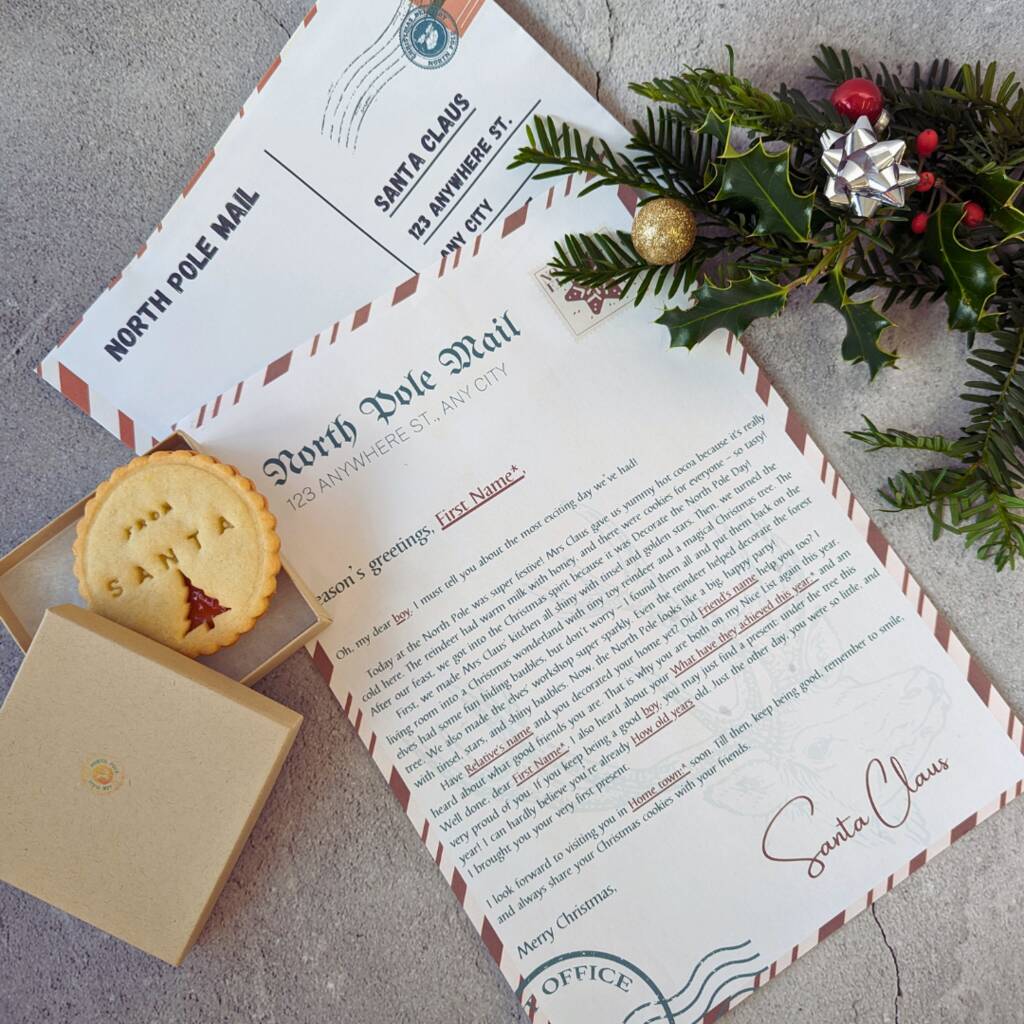 NORTH POLE MAIL
SANTA CLAUS
123 ANYWHERE ST.
ANY CITY
North Pole Mail
123 ANYWHERE ST., ANY CITY
eason's greetings, First Name*,
Oh, my dear boy, I must tell you about the most exciting day we've had!
Today at the North Pole was super festive! Mrs Claus gave us yummy hot cocoa because it's really
cold here. The reindeer had warm milk with honey, and there were cookies for everyone – so tasty!
After our feast, we got into the Christmas spirit because it was Decorate the North Pole Day!
First, we made Mrs Claus' kitchen all shiny with tinsel and golden stars. Then, we turned the
living room into a Christmas wonderland with tiny toy reindeer and a magical Christmas tree. The
elves had some fun hiding baubles, but don't worry, I found them all and put them back on the
tree. We also made the elves' workshop super sparkly. Even the reindeer helped decorate the forest
with tinsel, stars, and shiny baubles. Now, the North Pole looks like a big, happy party!
Have Relative's name and you decorated your home yet? Did Friend's name help you too? I
heard about what good friends you are. That is why you are both on my Nice List again this year.
Well done, dear First Name*. I also heard about your What have they achieved this year:* and am
very proud of you. If you keep being a good boy, you may just find a present under the tree this
year! I can hardly believe you're already How old years old. Just the other day, you were so little, and
I brought you your very first present.
I look forward to visiting you in Home town:* soon. Till then, keep being good, remember to smile,
and always share your Christmas cookies with your friends.
Merry Christmas,
Santa Claus
OFFICE
FROM
SANTA